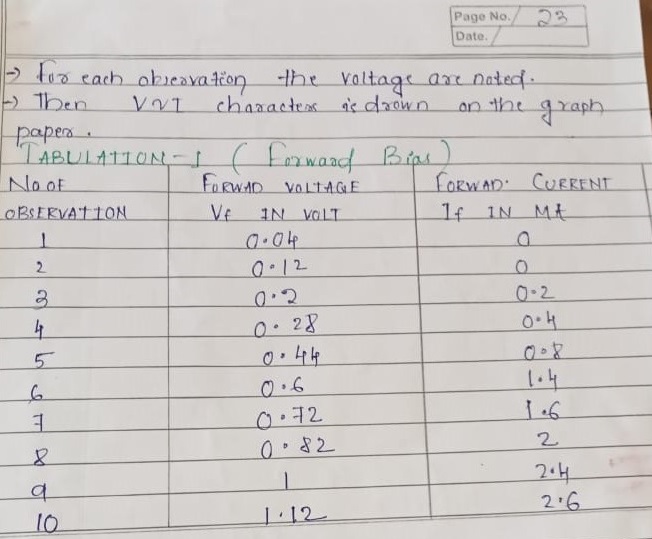 Page No. 23
Date.
→ for each observation the voltage are noted.
→ Then V~I characters is drown on the graph
paper.
TABULATION-1 (Forward Bias)
No OF FORWAD VOLTAGE FORWAD. CURRENT
OBSERVATION Vf IN VOLT If IN MA
1 0.04 0
2 0.12 0
3 0.2 0.2
4 0.28 0.4
5 0.44 0.8
6 0.6 1.4
7 0.72 1.6
8 0.82 2
9 1 2.4
10 1.12 2.6